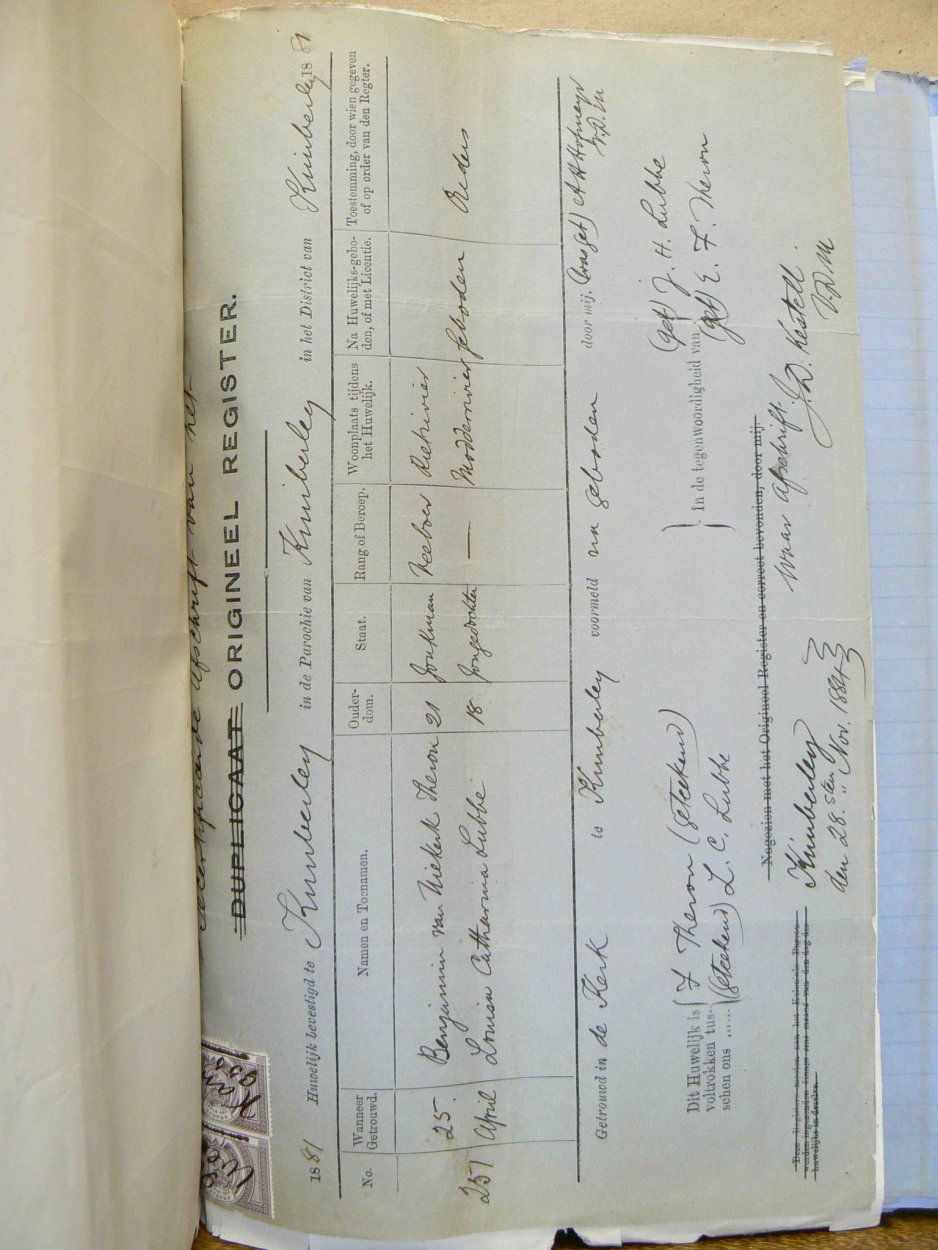 Afschrift van het
DUPLICAAT ORIGINEEL REGISTER.
1881 Huwelijk bevestigd te Kimberley in de Parochie van Kimberley in het District van Kimberley 1881
No. Wanneer Getrouwd. Namen en Toenamen. Ouder-dom. Staat. Rang of Beroep. Woonplaats tijdens het Huwelijk. Na Huwelijks-gebo-den, of met Licentie. Toestemming, door wien gegeven of op order van den Regter.
25. Benjamin van Niekerk Theron 21 Jonkman Veeboer Rietrivier
251 April Louisa Catharina Lubbe 18 Jongedochter — Modderrivier geboden Ouders
Getrouwd in de Kerk te Kimberley voormeld na geboden door mij, (was get) A H Hofmeyr
V.D.M
Dit Huwelijk is voltrokken tus-schen ons ......
F Theron (geteekend)
(geteekend) L. C. Lubbe
In de tegenwoordigheid van
(get) J. H. Lubbe
(get) E. F. Theron
Nagezien met het Origineel Register en correct bevonden, door mij.
Deze Registers moeten aan het Koloniale Bureau
worden ingezonden binnen eene maand van den dag des
huwelijks in dezelve.
Kimberley
den 28sten Nov. 1884
Waar afschrift.
J. D. Kestell
V.D.M